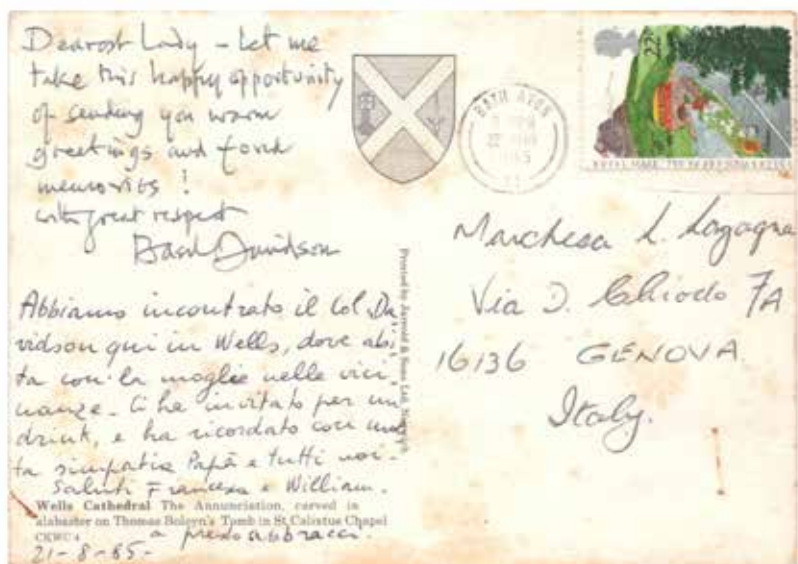 Dearest Lady - Let me
take this happy opportunity
of sending you warm
greetings and fond
memories !
with great respect
Basil Davidson
Abbiamo incontrato il Col. Da
vidson qui in Wells, dove abi
ta con la moglie nelle vici
nanze. Ci ha invitato per un
drink, e ha ricordato con mol
ta simpatia Papà e tutti noi.
Saluti Francesca e William.
Wells Cathedral The Annunciation, carved in
alabaster on Thomas Boleyn's Tomb in St Calixtus Chapel
CKWU 4
a presto abbracci.
21-8-85-
Printed by Jarrold & Sons Ltd, Norwich
BATH AVON
22½
ROYAL MAIL
Marchesa L. Lagagna
Via D. Chiodo 7A
16136 GENOVA
Italy.